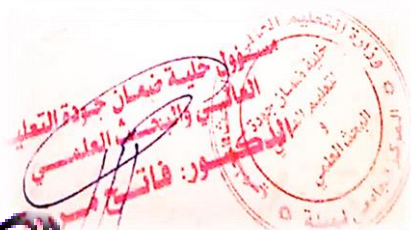 مسؤول خلية ضمان جودة التعليم
العالي والبحث العلمي
الدكتور: فاتح
وزارة التعليم
خلية ضمان جودة
التعليم العالي
و
البحث العلمي